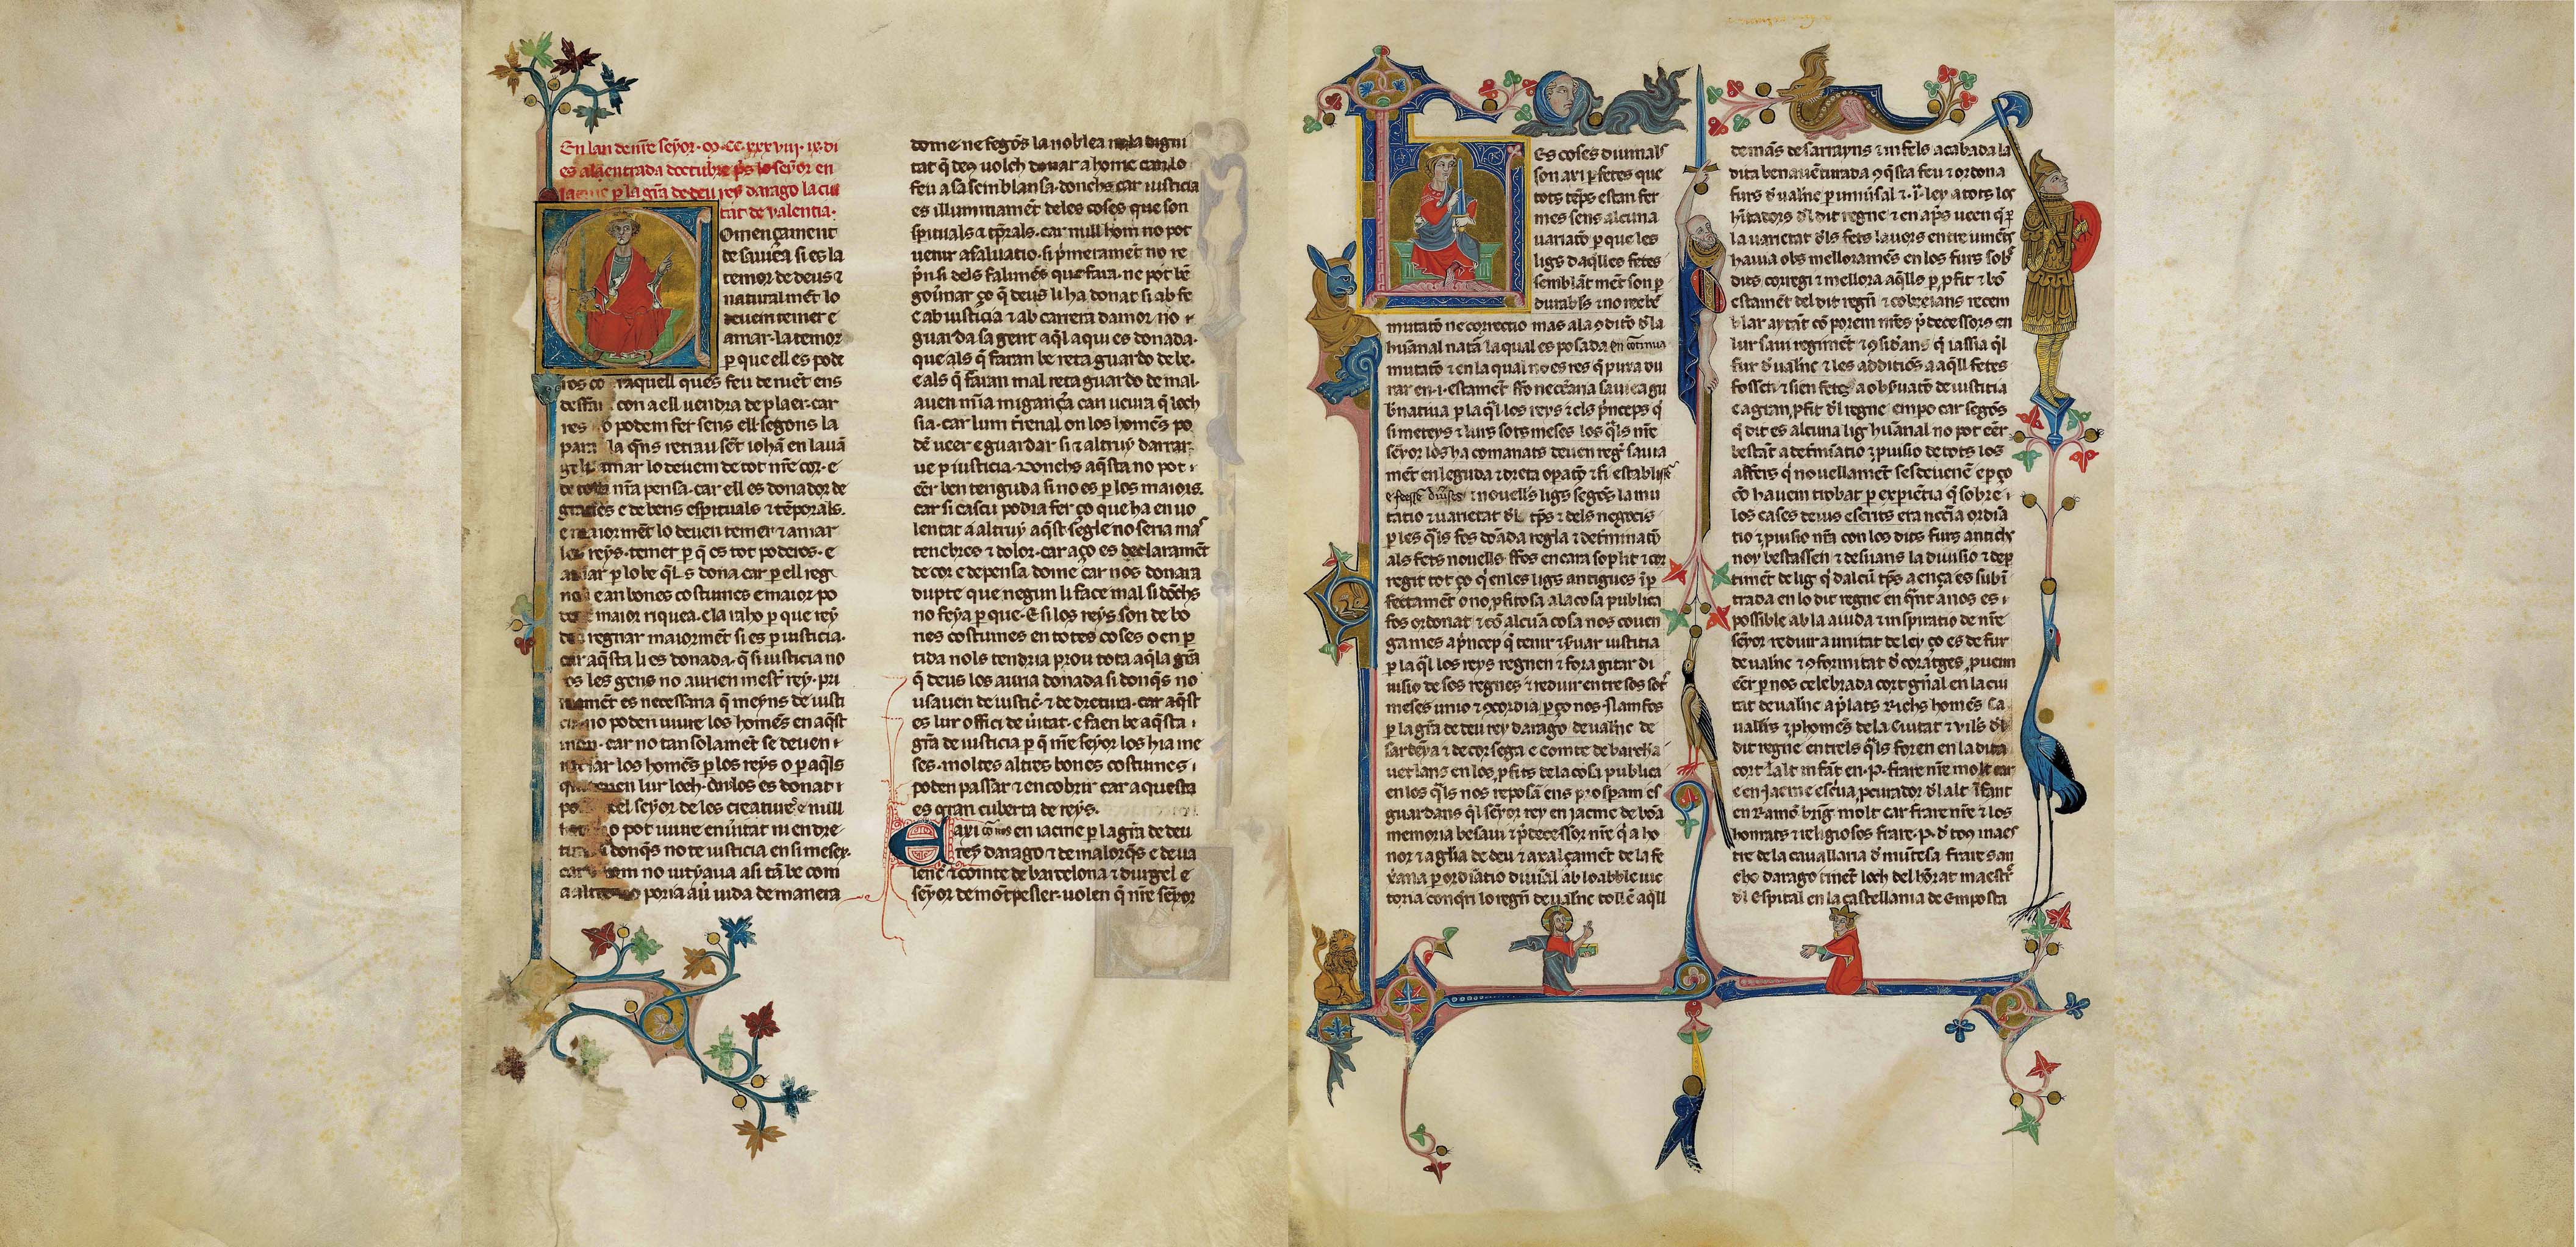 En lan de nr̃e seyor · M · CC · xxxviii · ix · di
es a la entrada doctubre p̃s lo seyor en
Jacme p la gr̃a de deu rey darago la ciu
tat de Valentia ·
Començament
de sauiea si es la
temor de deus ⁊
naturalmẽt lo
deuem temer e
amar · la temor
p que ell es pode
ros co raquell ques feu de niẽt ens
con a ell uendra de plaer · car
res podem fer sens ell segons la
para la q̃ns retrau sẽt iohã en lauã
amar lo deuem de tot nr̃e cor · e
de tota nr̃a pensa · car ell es donador de
gracies e de bens espirituals ⁊ tẽporals ·
e maiormẽt lo deuen temer ⁊ amar
los reys · temer p q̃ es tot poderos · e
amar p lo be q̃ls dona car p ell reg
nen e an bones costumes e maior po
der e maior riquea · Ela raho p que rey
deu regnar maiormẽt si es p iusticia ·
car aq̃sta li es donada · q̃ si iusticia no
fos les gens no aurien mest̃ rey · pri
mamẽt es necessaria q̃ meyns de iusti
cia no poden uiure los homẽs en aq̃st
mon · car no tan solamẽt se deuen
iutiar los homẽs p los reys o p aq̃ls
qui tenen lur loch · on los es donat
del seyor de los creatiue e null
hom no pot uiure en uitat ni en dre
tura donq̃s no te iusticia en si meseẏ ·
car hom no uiuria asi tã be com
a altre no poria auer uida de manera
dome ne segõs la noblea ne la digni
tat q̃ deu uolch donar a home can lo
feu a sa semblansa · donchs car iusticia
es illuminamẽt de les coses que son
spirituals ⁊ tp̃rals · car null hom no pot
uenir a saluatio · si p̃meramẽt no re
p̃n si dels falimẽs que fara · ne pot bẽ
goũnar ço q̃ deus li ha donat si ab fe
e ab iusticia ⁊ ab carrera damor · no
guarda sa gent aq̃l a qui es donada ·
que als q̃ faran be reta guardo de be ·
e als q̃ faran mal reta guardo de mal ·
auen mr̃a migançã can ueura q̃ loch
sia · car lum tr̃enal on los homẽs po
dẽ ueer e guardar si ⁊ altruy darrar
ue p iusticia · Donchs aq̃sta no pot
eẽr ben tenguda si no es p los maiors ·
car si cascu podia fer ço que ha en uo
lentat a altruy aq̃st segle no seria mas
tenebres ⁊ dolor · car aço es declaramẽt
de cor e de pensa dome car nos donara
dupte que negun li face mal si dõchs
no feya p que · E si los reys son de bo
nes costumes en totes coses o en p
tida nols tendria prou tota aq̃la gr̃a
q̃ deus los auria donada si donq̃s no
usauen de iustic̃ · ⁊ de dretura · car aq̃st
es lur offici de uitat · e faen be aq̃sta
gr̃a de iusticia p q̃ nr̃e seyor los hi a me
ses · moltes altres bones costumes
poden passar ⁊ encobrir car aquesta
es gran cuberta de reys ·
E axi co nos en iacme p la gr̃a de deu
rey darago ⁊ de malorq̃s e de ua
lenc̃ ⁊ comte de barcelona ⁊ durgel e
seyor de mõtpesler · uolen q̃ nr̃e seyor
Les coses diuinals
son axi pfetes que
tots tẽps estan fer
mes sens alcuna
uariatõ p que les
ligs daq̃lles fetes
semblãtmẽt son p
durabls ⁊ no reebẽ
mutatõ ne correctio mas a la ↄditõ d̃la
hũanal natã la qual es posada en cõtinua
mutatõ ⁊ en la qual no es res q̃ pura du
rar en · i · estamẽt ffo necc̃aria sauiea gu
b̃natiua p la q̃l los reys ⁊ els p̃nceps q̃
si meteys ⁊ lurs sots meses los q̃ls nr̃e
seyor los ha comanats deuen reg̃ sauia
mẽt en leguda ⁊ dreta opatõ ⁊ fi establisẽ
e feesse diũses ⁊ nouells ligs segõs la mu
tatio ⁊ uarietat d̃ls tp̃s ⁊ dels negocis
p les q̃ls fos dõada regla ⁊ det̃minatõ
als fets nouells ffos encara soplit ⁊ cor
regit tot ço q̃ en les ligs antigues ĩp
fectamẽt o no pfitosa a la cosa publica
fos ordonat ⁊ cõ alcuã cosa nos couen
ga mes a p̃ncep q̃ tenir ⁊ s̃uar iusticia
p la q̃l los reys regnen ⁊ fora gitar di
uisio de sos regnes ⁊ reduir entre sos sot̃
meses unio ⁊ ↄcordia p ço nos Namfos
p la gr̃a de deu rey darago de ualñc de
sardeya ⁊ de corsega e comte de barcha
uetlans en los pfits de la cosa publica
en los q̃ls nos reposã ens prospam es
guardans q̃l seyor rey en jacme de bõa
memoria besaui ⁊ p̃decessor nr̃e q̃ a ho
nor ⁊ a gl̃ia de deu ⁊ axalçamẽt de la fe
xr̃ana p ordiatio diuĩal ab loable uic
toria conq̃ri lo regñ de ualñc tollẽ aq̃ll
de mãs de sarrayns ⁊ infels acabada la
dita benauẽturada ↄq̃sta feu ⁊ ordona
furs d̃ ualñc p uniũsal ⁊ · i · ley a tots los
hĩtadors d̃l dit regne ⁊ en apr̃s ueen q̃ p
la uarietat d̃ls fets lauors entreuinẽts
hauia obs melloramẽs en los furs sob̃
dits corregi ⁊ mellora aq̃lls p pfit ⁊ bõ
estamẽt del dit regñ ⁊ cobreians recem
blar aytãt cõ porem nr̃es p̃decessors en
lur saui regimẽt ⁊ ↄsid̃ans q̃ iassia q̃l
fur d̃ ualñc ⁊ les additiõs a aq̃ll fetes
fossen ⁊ sien fetes a obs̃uatõ de iusticia
e a gran pfit d̃l regne empo car segõs
q̃ dit es alcuna lig hũanal no pot eẽr
bestãt a det̃miatio ⁊ puisio de tots los
affers q̃ nouellamẽt sesdeuenẽ e p ço
cõ hauem trobat p expiẽtia q̃ sobre
los cases deius escrits era necc̃ia ordia
tio ⁊ puisio nr̃a con los dits furs antichs
noy bestassen ⁊ desijans la diuisio ⁊ dep
timẽt de lig q̃ dalcũ tp̃s a ença es subi
trada en lo dit regne en q̃nt a nos es
possible ab la aiuda ⁊ inspiratio de nr̃e
seyor reduir a unitat de ley ço es de fur
de ualñc ⁊ ↄformitat d̃ coratges puem
eẽr p nos celebrada cort gñal en la ciu
tat de ualñc a p̃lats richs homẽs ca
uallũs ⁊ phomẽs de la Ciutat ⁊ uil̃s d̃l
dit regne entrels q̃ls foren en la dita
cort lalt infãt en · P · frare nr̃e molt car
e en jacme escriua pcurador d̃l alt ĩfant
en Ramõ brg̃ · molt car frare nr̃e ⁊ los
honrats ⁊ religiosos frare · P · d̃ tous maes
tre de la cauallaria d̃ mũtesa frare san
cho darago tinẽt loch del hõrat maestr̃
d̃l Espital en la castellania de Emposta